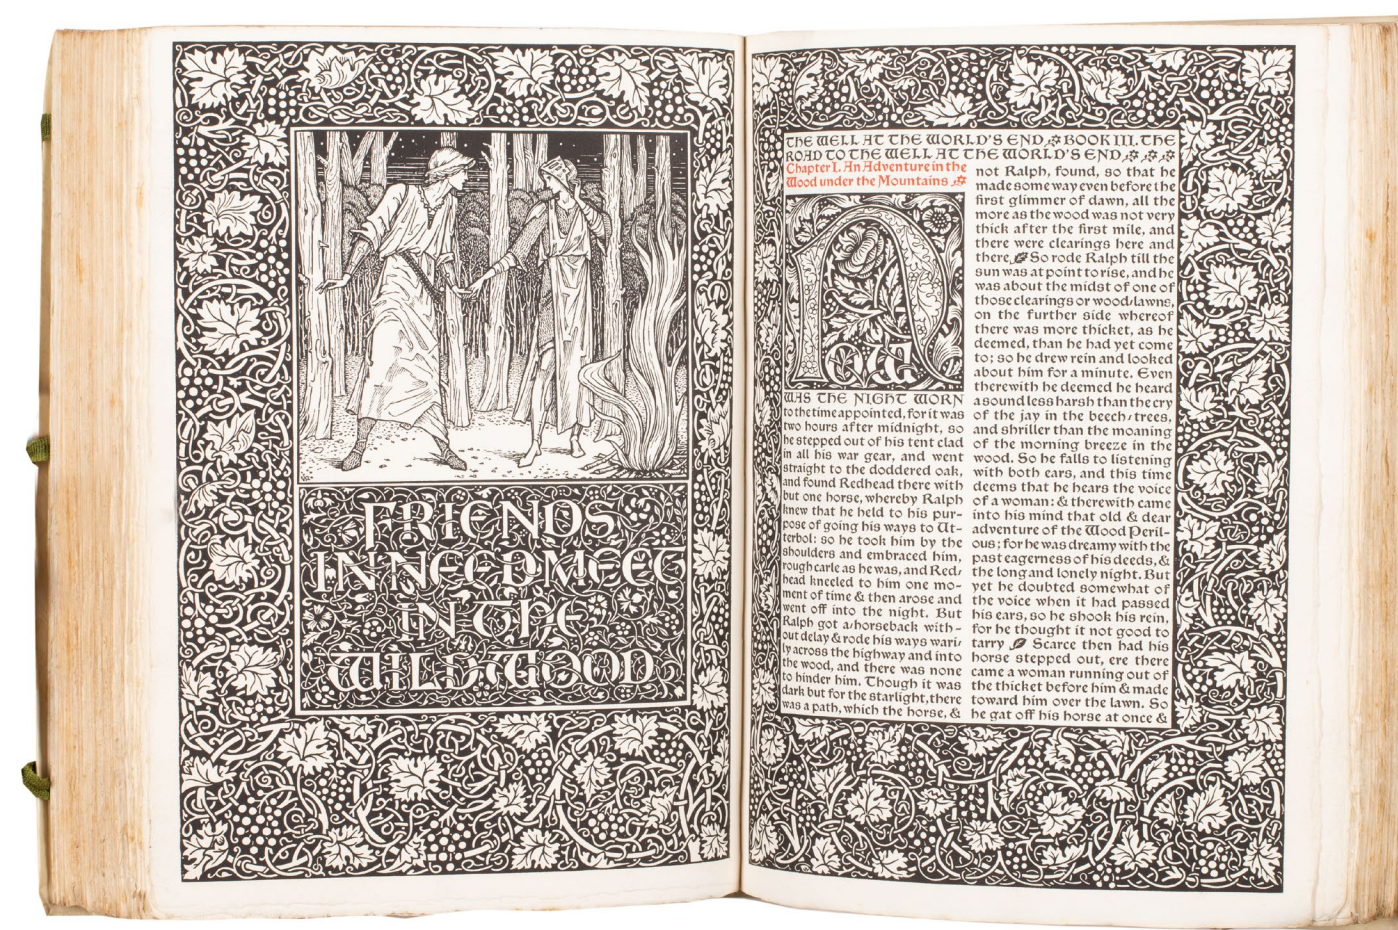 FRIENDS
IN NEED MEET
IN THE
WILD WOOD
THE WELL AT THE WORLD'S END. BOOK III. THE
ROAD TO THE WELL AT THE WORLD'S END.
Chapter I. An Adventure in the
Wood under the Mountains
NOW
WAS THE NIGHT WORN
to the time appointed, for it was
two hours after midnight, so
he stepped out of his tent clad
in all his war gear, and went
straight to the doddered oak,
and found Redhead there with
but one horse, whereby Ralph
knew that he held to his pur-
pose of going his ways to Ut-
terbol: so he took him by the
shoulders and embraced him,
rough carle as he was, and Red-
head kneeled to him one mo-
ment of time & then arose and
went off into the night. But
Ralph got a-horseback with-
out delay & rode his ways wari-
ly across the highway and into
the wood, and there was none
to hinder him. Though it was
dark but for the starlight, there
was a path, which the horse, &
not Ralph, found, so that he
made some way even before the
first glimmer of dawn, all the
more as the wood was not very
thick after the first mile, and
there were clearings here and
there. So rode Ralph till the
sun was at point to rise, and he
was about the midst of one of
those clearings or wood-lawns,
on the further side whereof
there was more thicket, as he
deemed, than he had yet come
to; so he drew rein and looked
about him for a minute. Even
therewith he deemed he heard
a sound less harsh than the cry
of the jay in the beech-trees,
and shriller than the moaning
of the morning breeze in the
wood. So he falls to listening
with both ears, and this time
deems that he hears the voice
of a woman: & therewith came
into his mind that old & dear
adventure of the Wood Peril-
ous; for he was dreamy with the
past eagerness of his deeds, &
the long and lonely night. But
yet he doubted somewhat of
the voice when it had passed
his ears, so he shook his rein,
for he thought it not good to
tarry Scarce then had his
horse stepped out, ere there
came a woman running out of
the thicket before him & made
toward him over the lawn. So
he gat off his horse at once &